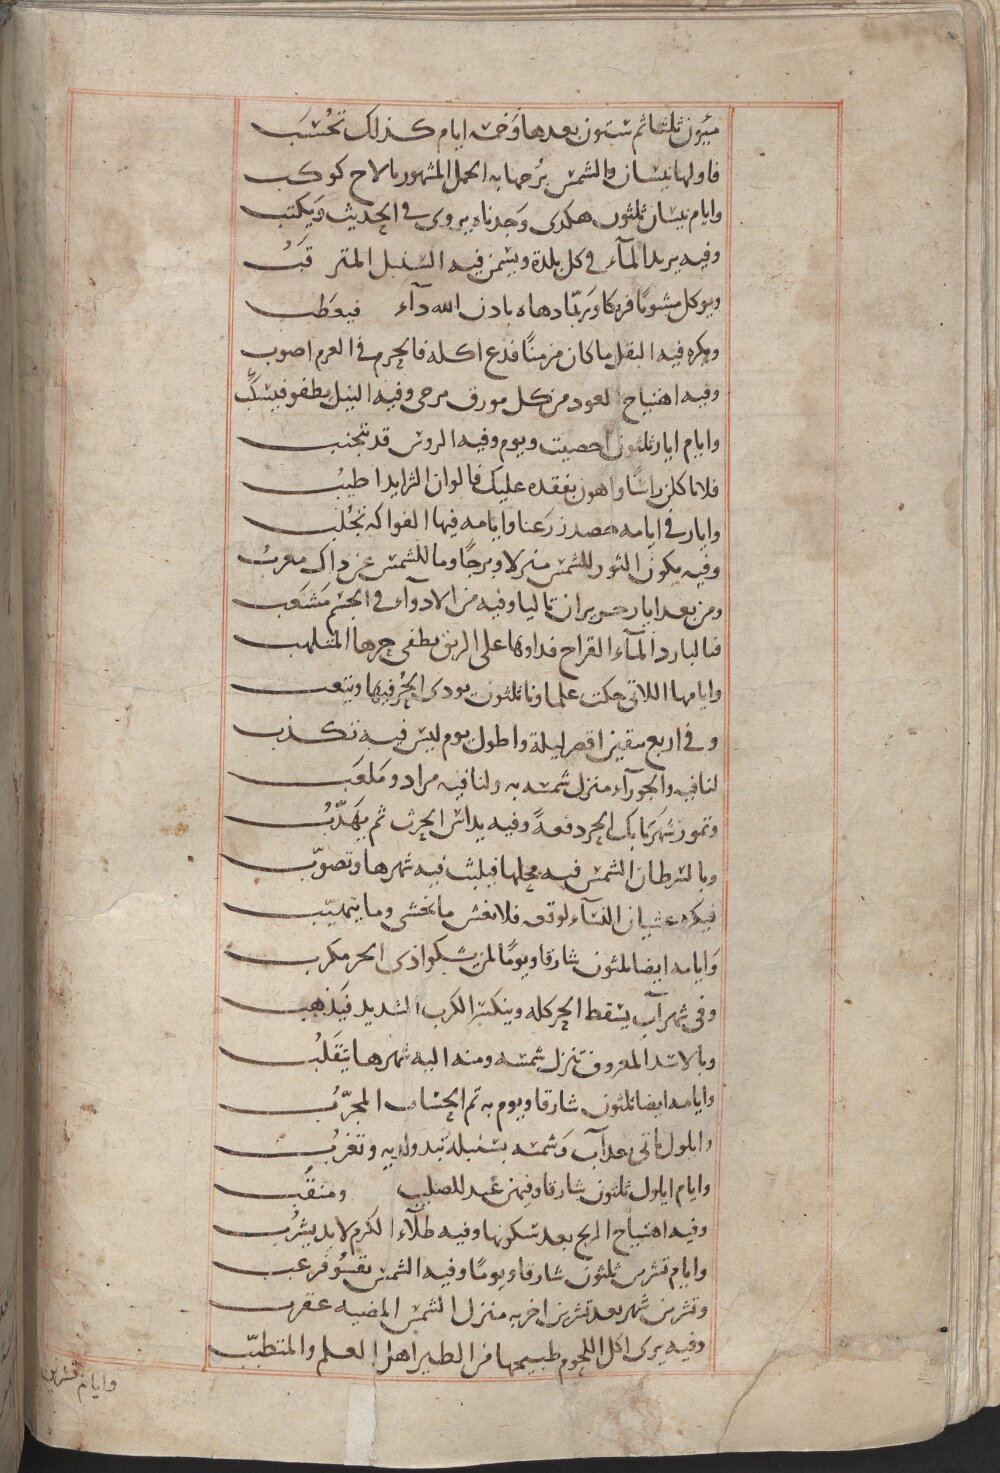 مئون ثلثا ثم ستون بعدها وخمسه ايام كذلك تحسب
فاولها نيسان والشمس برجها به الحمل المشهور بالاح كوكب
وايام نيسان ثلثون هكدى وجدناه يروى في الحديث ويكتب
وفيه يريد المآء في كل بلدة ويسمن فيه السنبل المتر قب
ويوكل مشويا فريكا وربما دهاه باذن الله دآء فيعطب
ويكره فيه البقل ما كان مزمنا فدع اكله فالحزم في العزم اصوب
وفيه اهتياج العود من كل مورق مرحى وفيه النيل يطفو فيسكب
وايام ايار ثلثون احصيت ويوم وفيه الروس قد تتجنب
فلا تاكلن راسا واهون بفقده عليك فالوان الثرايد اطيب
وايار في ايامه حصد زرعنا وايامه فيها الفواكه تجلب
وفيه يكون الثور للشمس منزلا وبرجا وما للشمس عن ذاك معرب
ومن بعد ايار حزيران تاليا وفيه من الادوآء في الجسم مشعب
فبالبارد المآء القراح فداوها على الريق يطفى جرها المتلهب
وايامها اللاتي حكت علماونا ثلثون يوذى الحر فيها ويتعب
وفي اربع يبقين اقصر ليلة واطول يوم ليس فيه تكذب
لنا فيه والجوزآء منزل شمسه به ولنا فيه مراد وملعب
وتموز شهر تابك الحر دفعة وفيه يداس الحرث ثم يهذب
وبالسرطان الشمس فيه محلها فيلبث فيه شهرها وتصوب
فيكره غشيان النسآء لوقته فلا تغش ما تخشى وما يتهيب
وايامه ايضا ثلثون شارقا ويوما لمن يشكوا اذى الحر مكرب
وفي شهر آب يسقط الحر كله وينكسر الكرب الشديد فيذهب
وبالاسد المعروف تنزل شمسه ومنه اليه شهرها يتقلب
وايامه ايضا ثلثون شارقا ويوم به تم الحساب المجرب
وايلول ياتي بعد آب وشمسه بسنبلة تبدو لديه وتغرب
وايام ايلول ثلثون شارقا وفيهن عيد للصليب ومنقب
وفيه اهتياج الريح بعد سكونها وفيه طلآء الكرم لا بد يشرب
وايام تشرين ثلثون شارقا ويوما وفيه الشمس تقسو فرعب
وتشرين شهر بعد تشرين اخر به منزل الشمس المضيه عقرب
وفيه يرى اكل اللحوم طبيخها من الطير اهل العلم والمتطبب
وايام تشرين